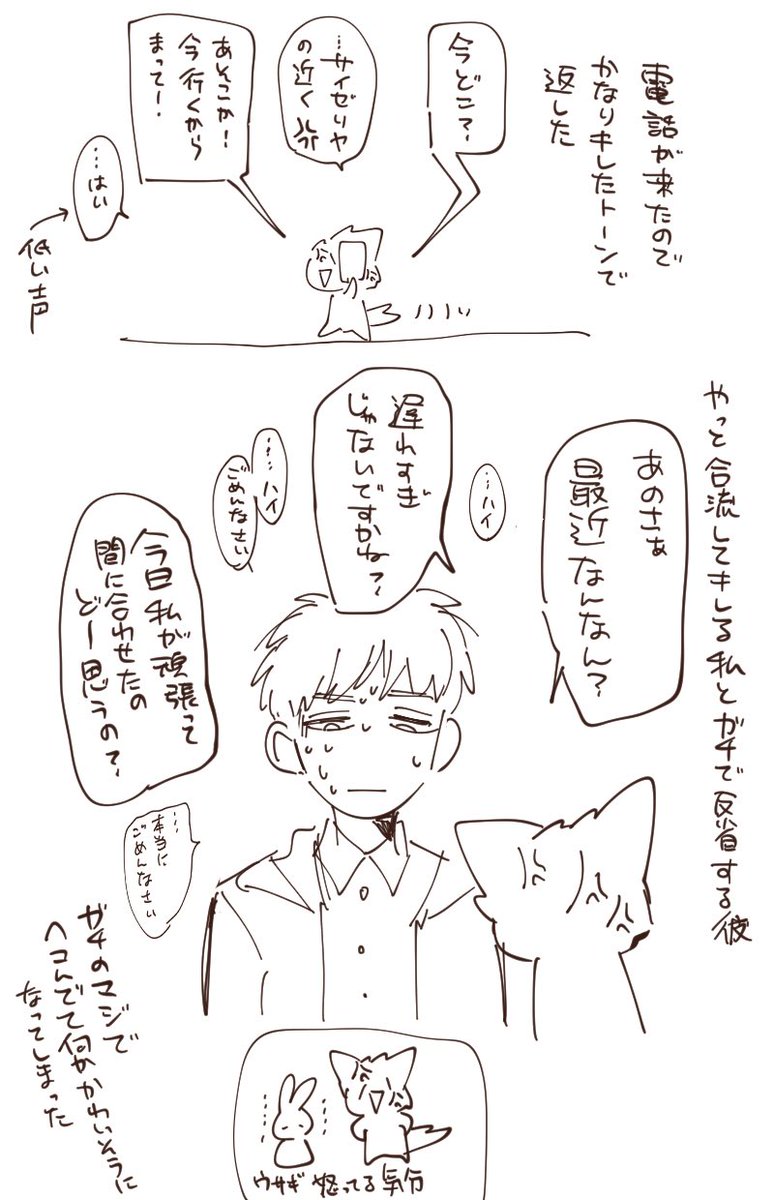 電話が来たので
かなりキレたトーンで
返した
今どこ？
…サイゼリヤ
の近く
あそこか！
今行くから
まってー！
…はい
低い声
やっと合流してキレる私とガチで反省する彼
あのさぁ
最近なんなん？
…ハイ
遅れすぎ
じゃないですかね？
…ハイ
ごめんなさい
今日私が頑張って
間に合わせたの
どー思うの？
…本当に
ごめんなさい
ガチのマジで
ヘコんでて何かかわいそうに
なってしまった
ウサギ怒ってる気分